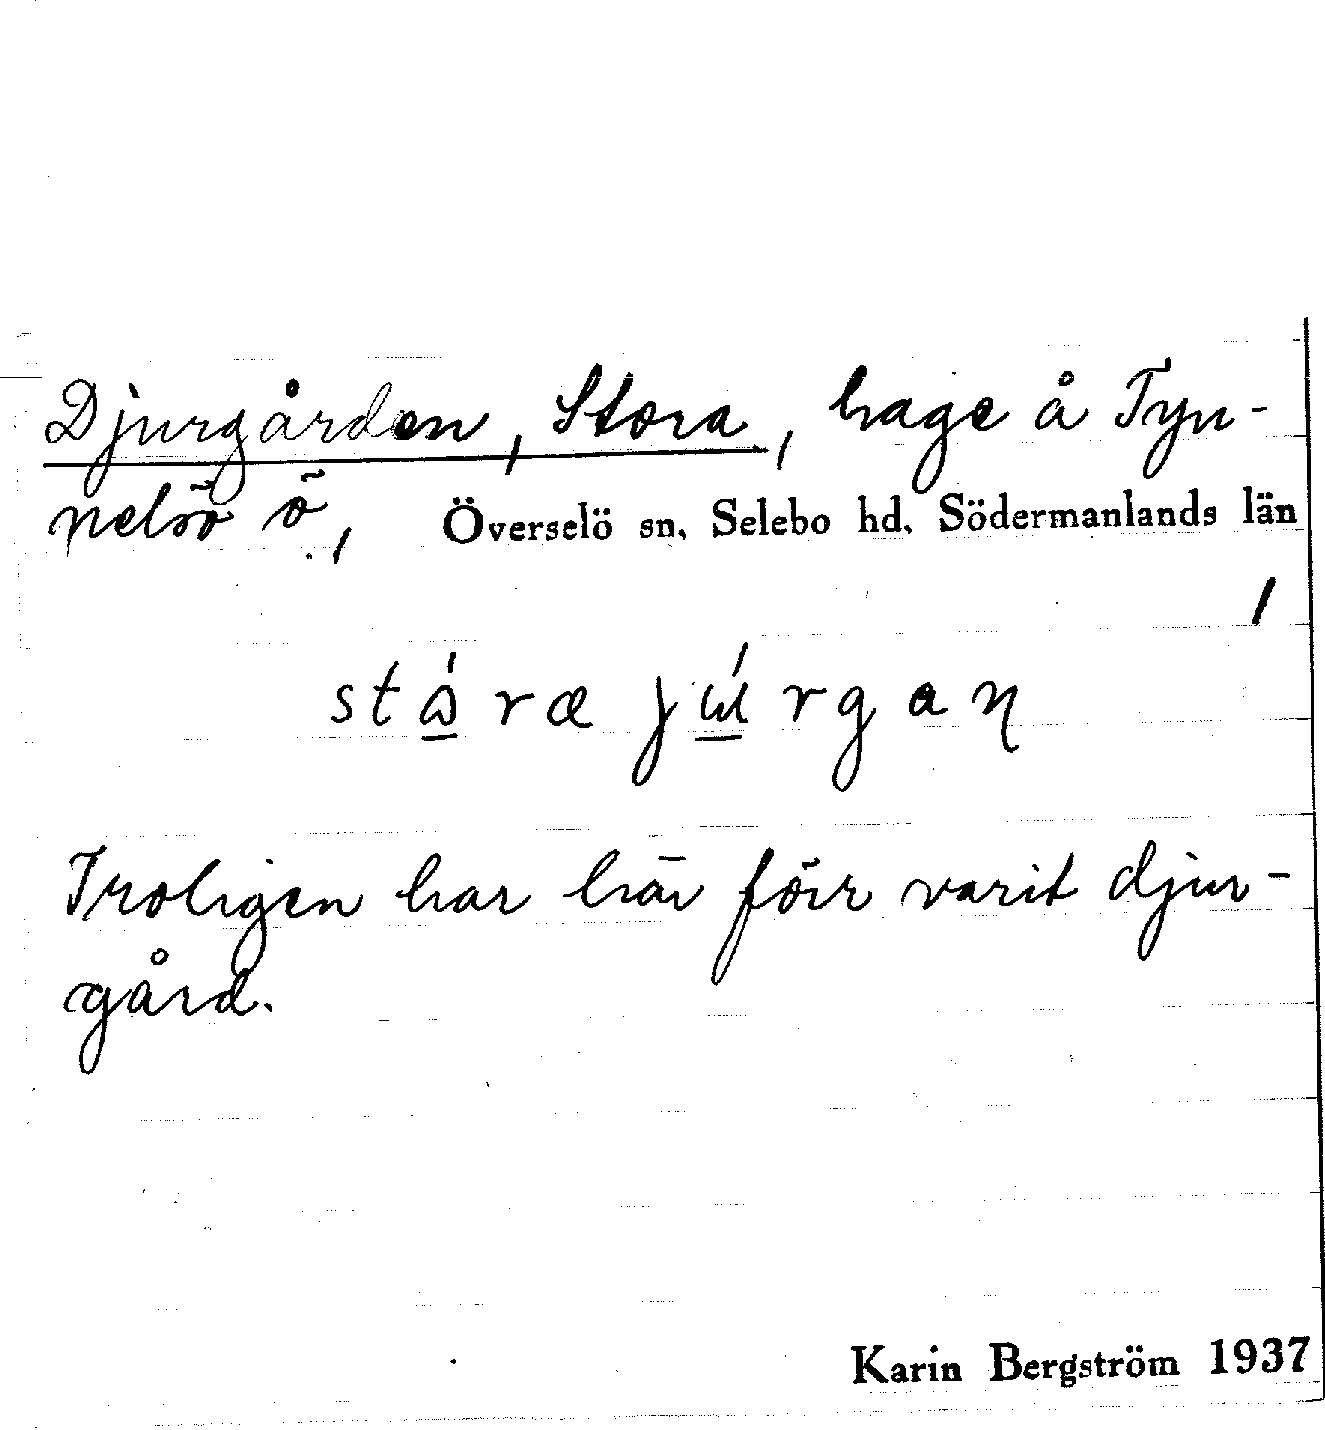 Djurgården, Stora, hage å Tyn-
nelsö ö, Överselö sn, Selebo hd, Södermanlands län
Troligen har här förr varit djur-
gård.
Karin Bergström 1937